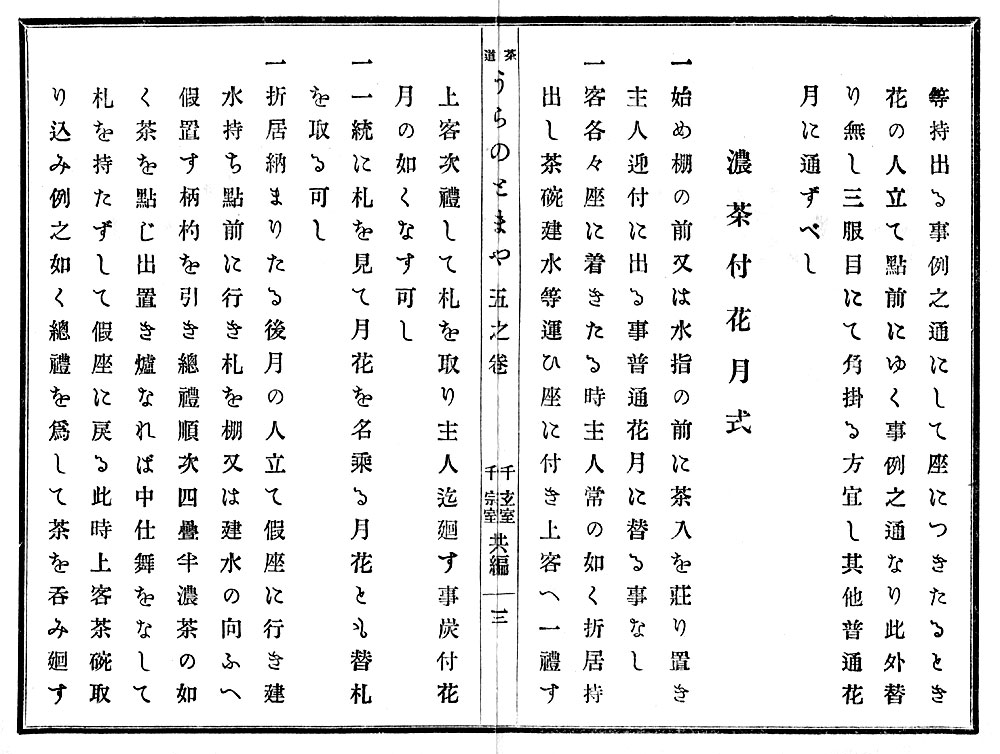 等持出る事例之通にして座につきたるとき
花の人立て點前にゆく事例之通なり此外替
り無し三服目にて角掛る方宜し其他普通花
月に通ずべし
濃茶付花月式
一始め棚の前又は水指の前に茶入を莊り置き
主人迎付に出る事普通花月に替る事なし
一客各々座に着きたる時主人常の如く折居持
出し茶碗建水等運ひ座に付き上客へ一禮す
茶道
うらのとまや五之卷
千玄室
千宗室
共編
三
上客次禮して札を取り主人迄廻す事炭付花
月の如くなす可し
一一統に札を見て月花を名乘る月花とも替札
を取る可し
一折居納まりたる後月の人立て假座に行き建
水持ち點前に行き札を棚又は建水の向ふへ
假置す柄杓を引き總禮順次四疊半濃茶の如
く茶を點じ出置き爐なれば中仕舞をなして
札を持たずして假座に戻る此時上客茶碗取
り込み例之如く總禮を爲して茶を呑み廻す